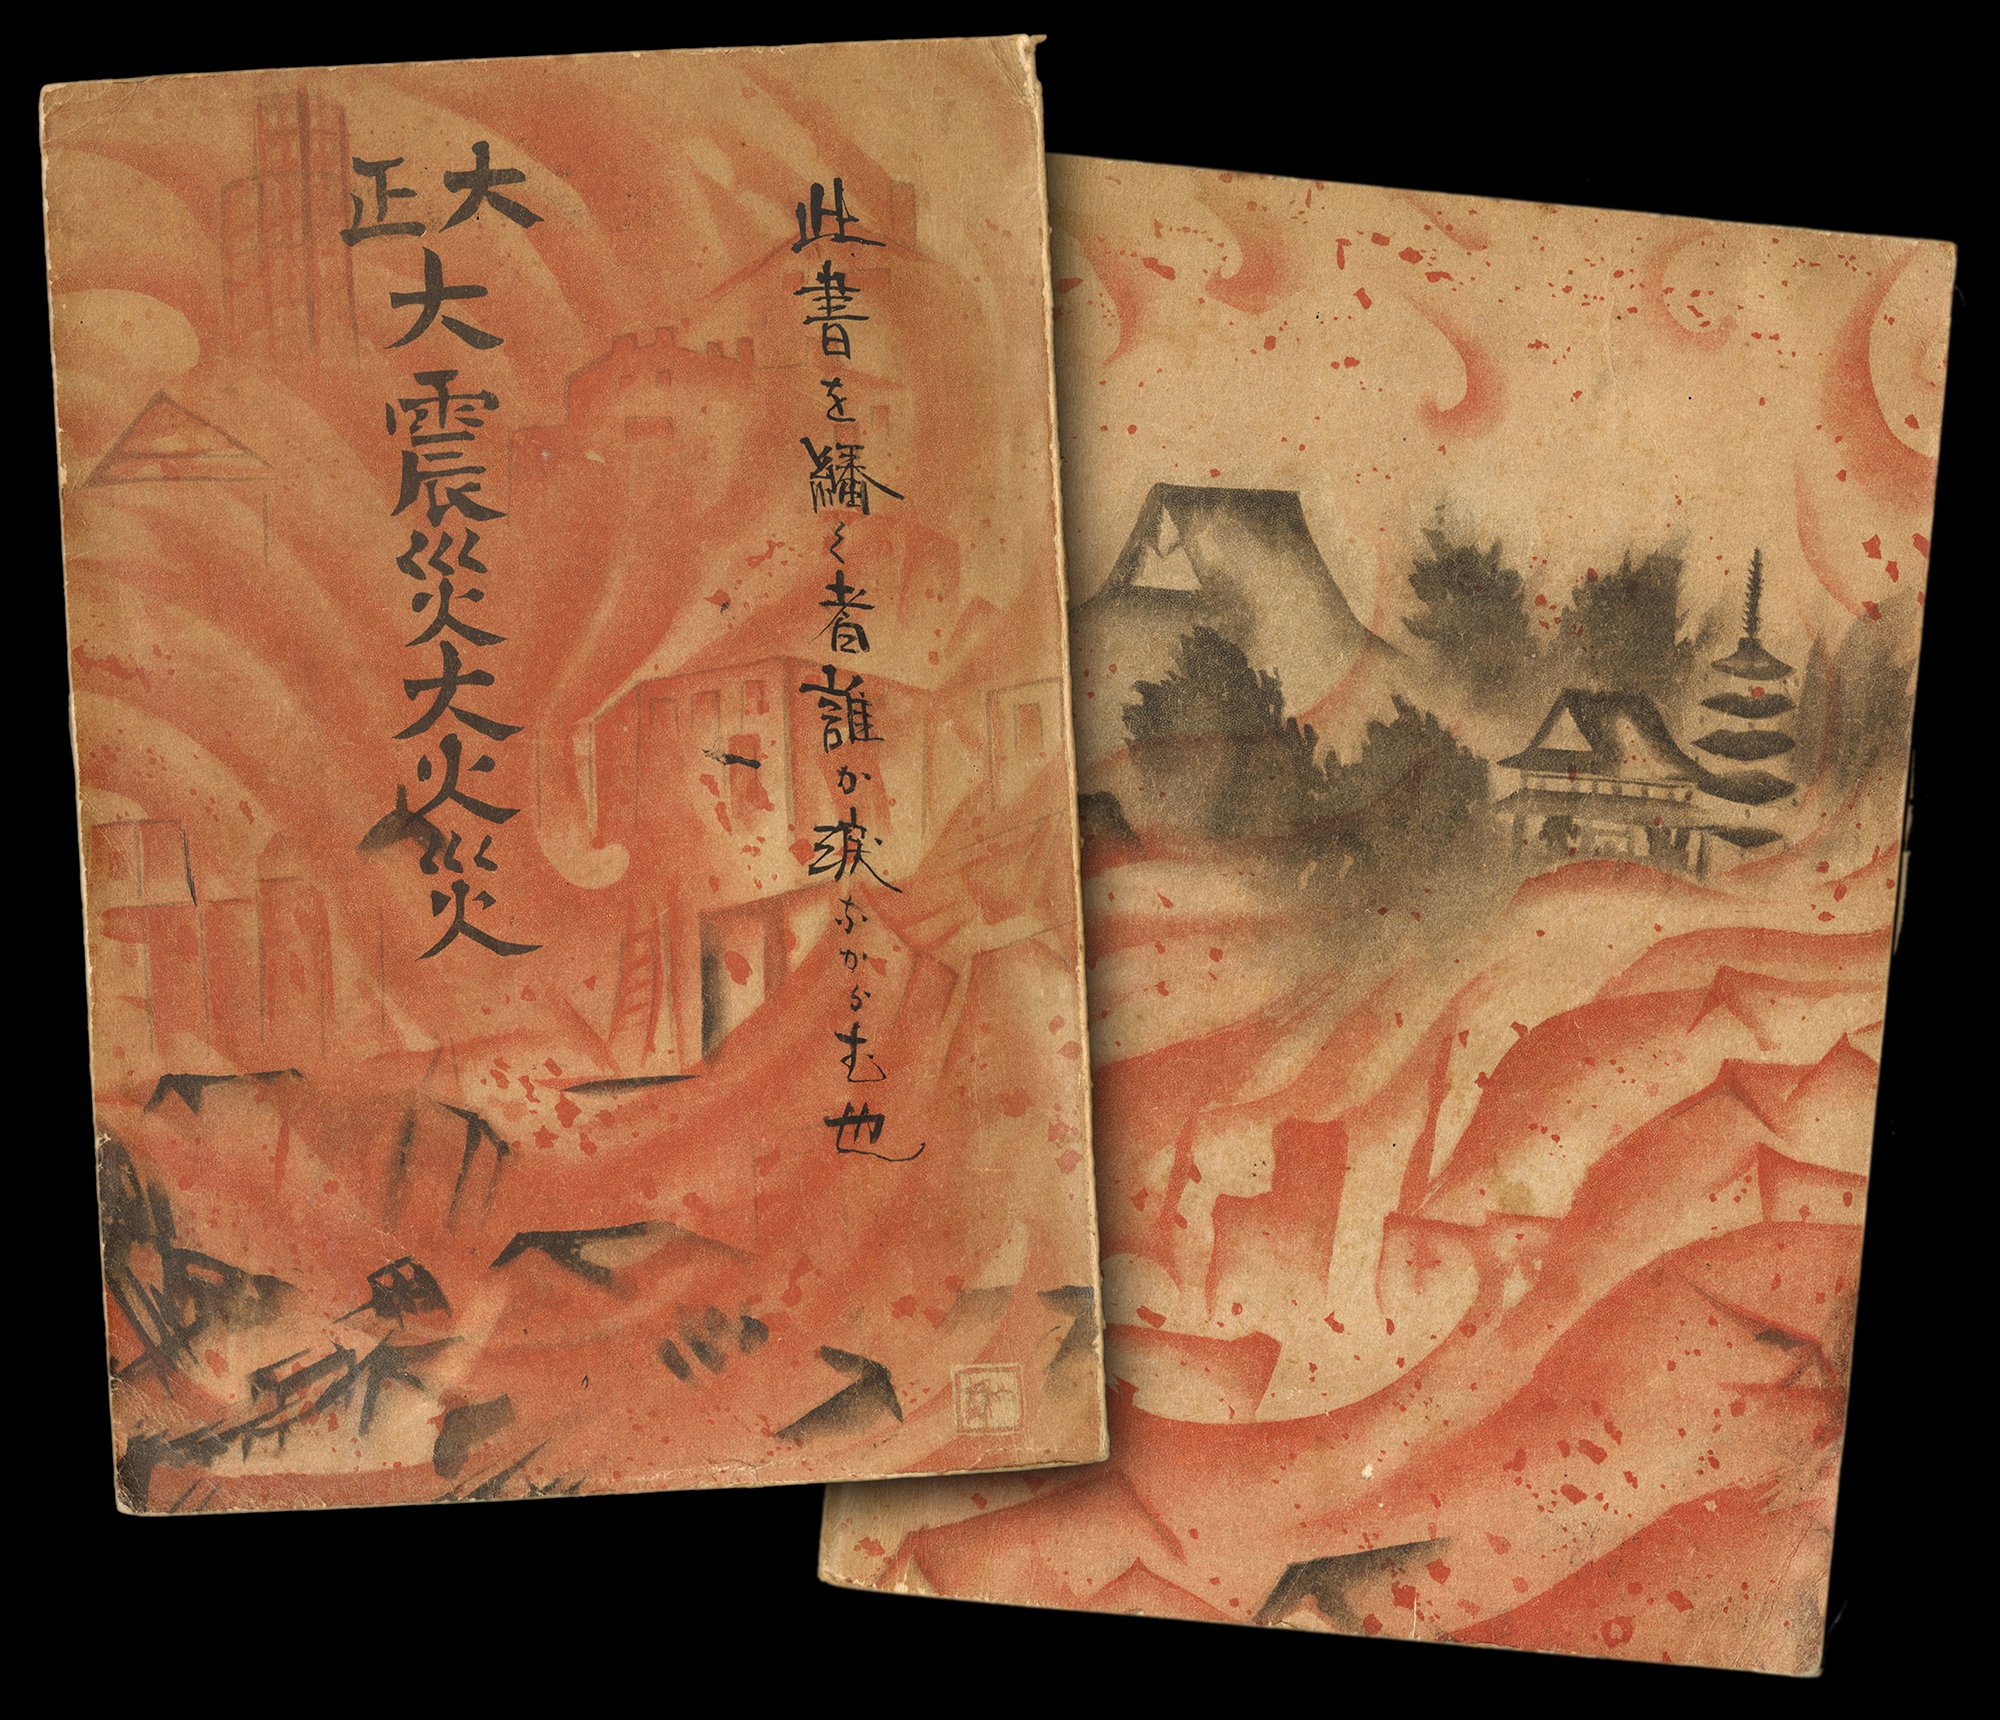 此書を繙く者誰か涙なからむ也
大正大震災大火災